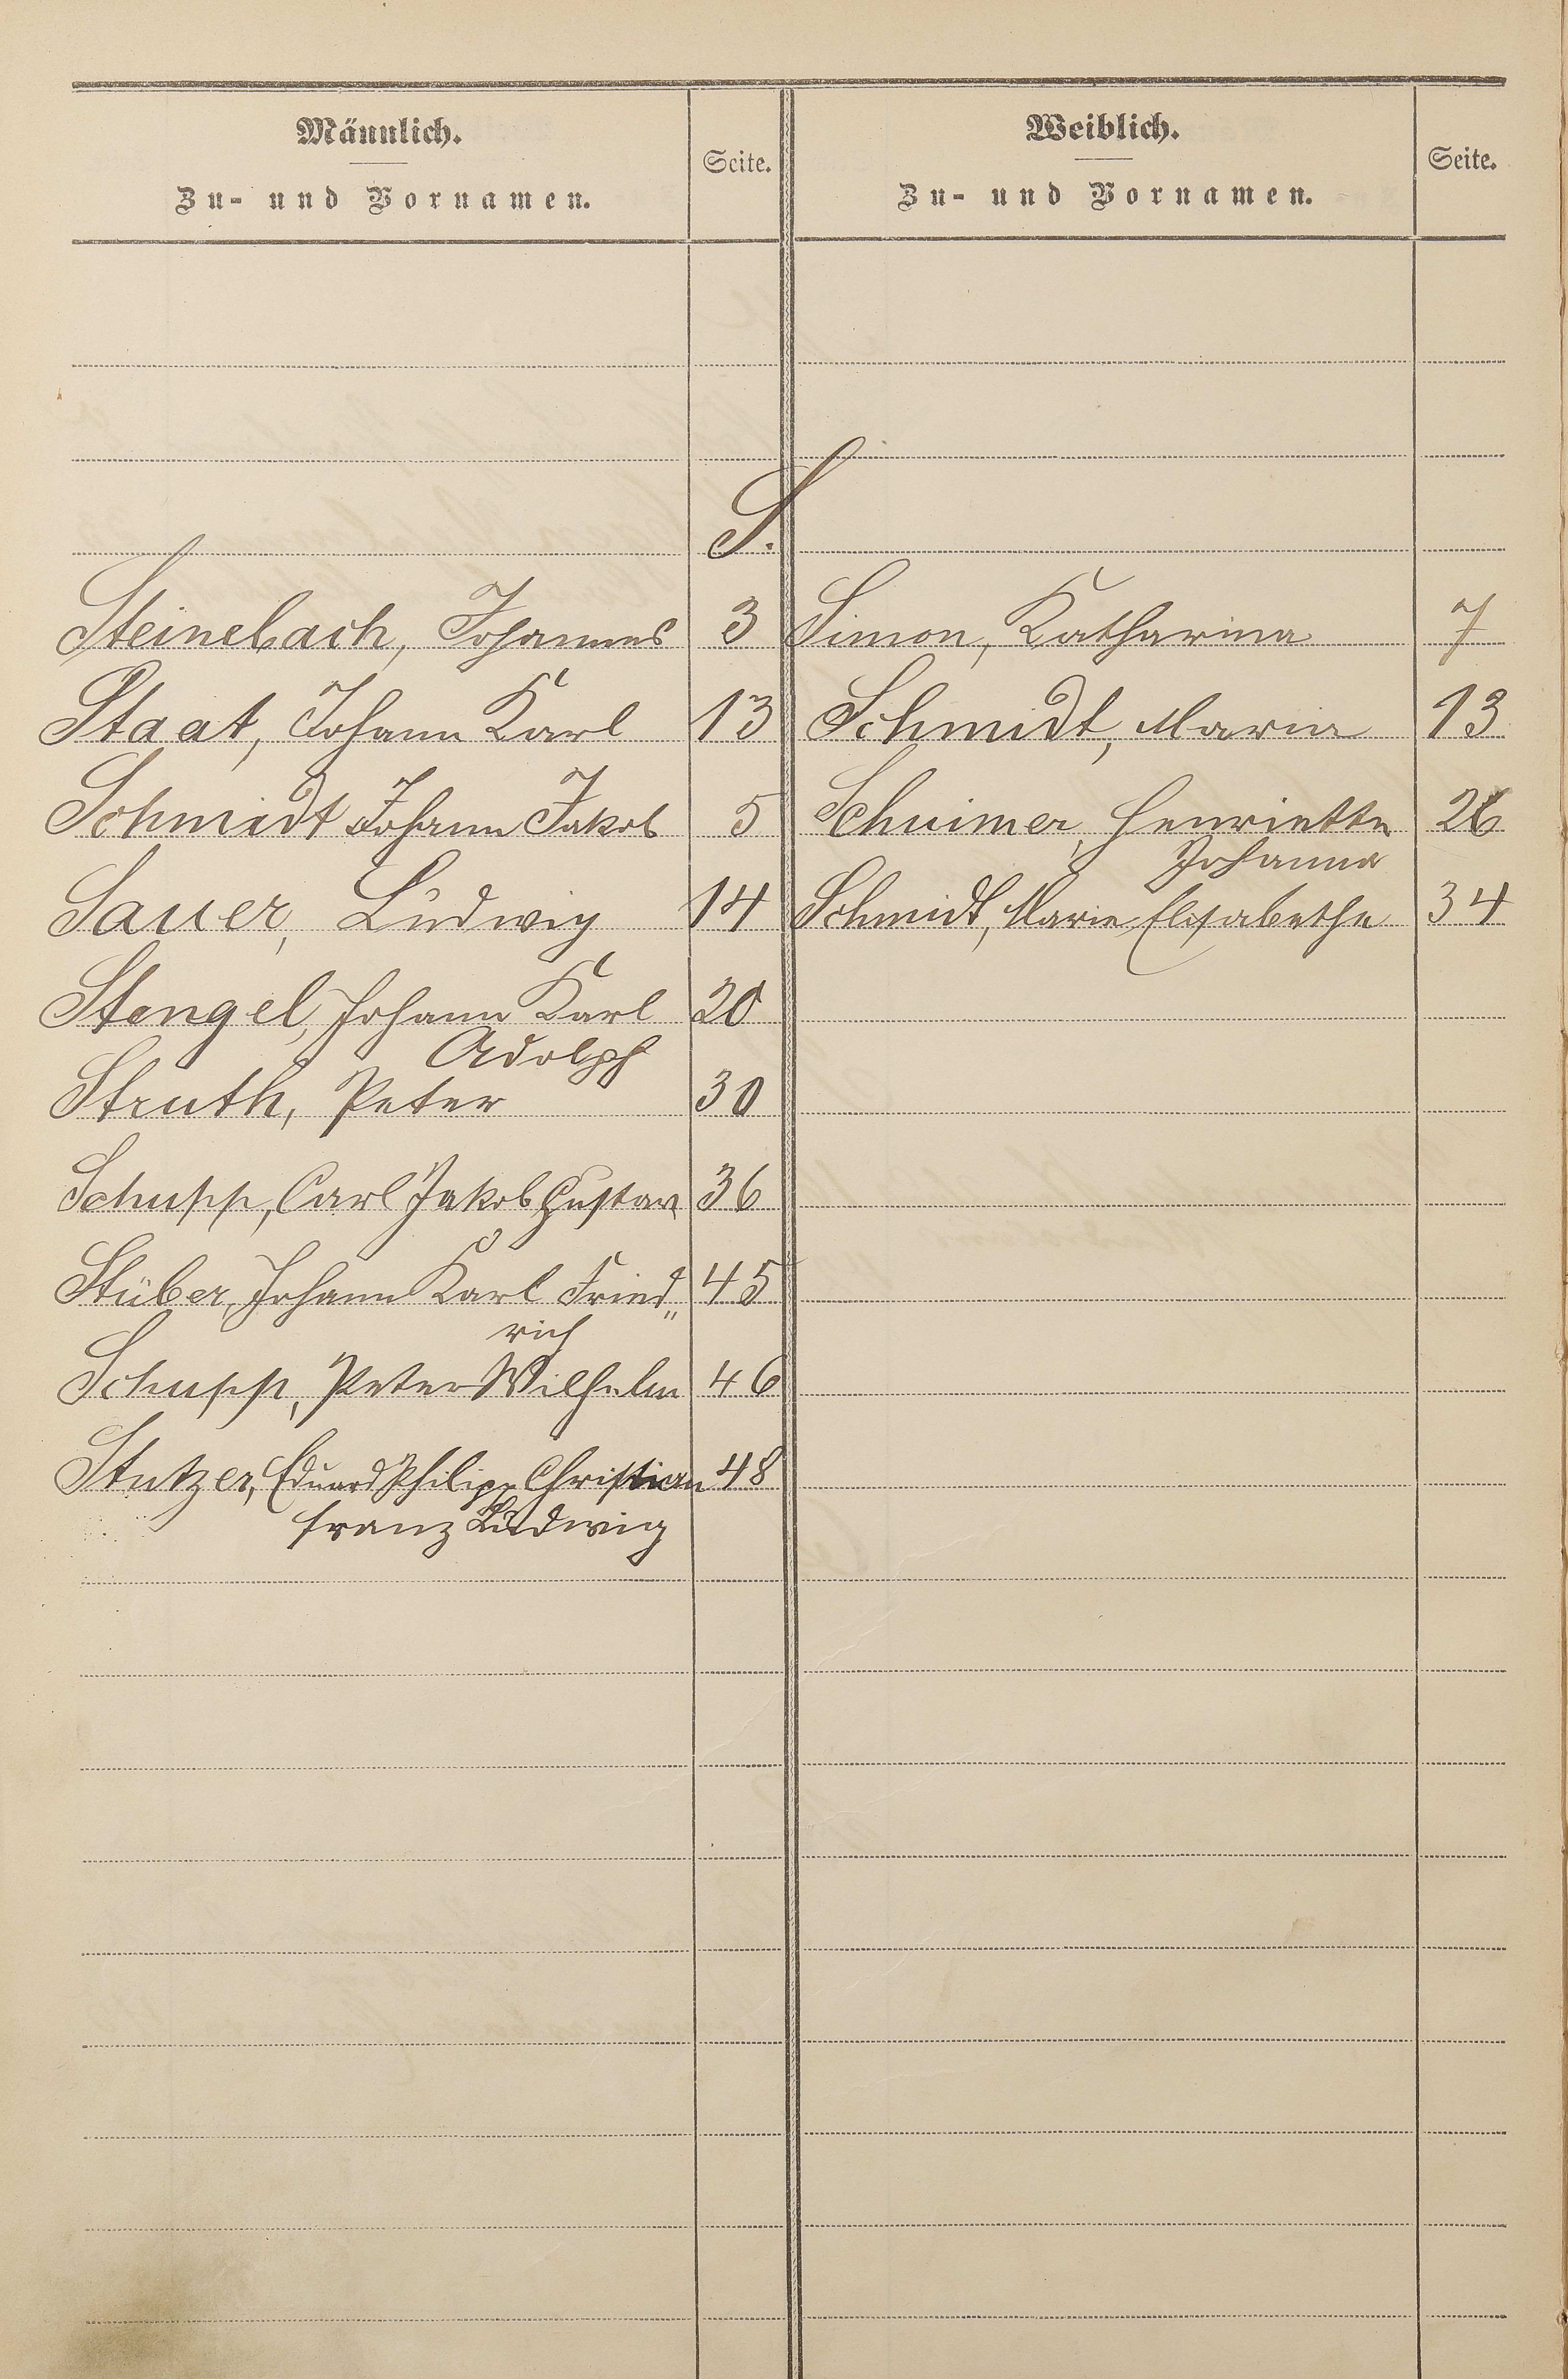 Männlich.
Zu- und Vornamen.
Seite.
Weiblich.
Zu- und Vornamen.
Seite.
S.
Steinebach, Johannes 3
Staat, Johann Karl 13
Schmidt Johann Jakob 5
Sauer, Ludwig 14
Stengel, Johann Karl 20
Adolph
Struth, Peter 30
Schupp, Carl Jakob Gustav 36
Stüber, Johann Karl Fried„ 45
rich
Schupp, Peter Wilhelm 46
Stutzer, Eduard Philipp Christian 48
Franz Ludwig
Simon, Katharina 7
Schmidt, Maria 13
Henriette 26
Johanna
Schmidt, Marie Elisabethe 34